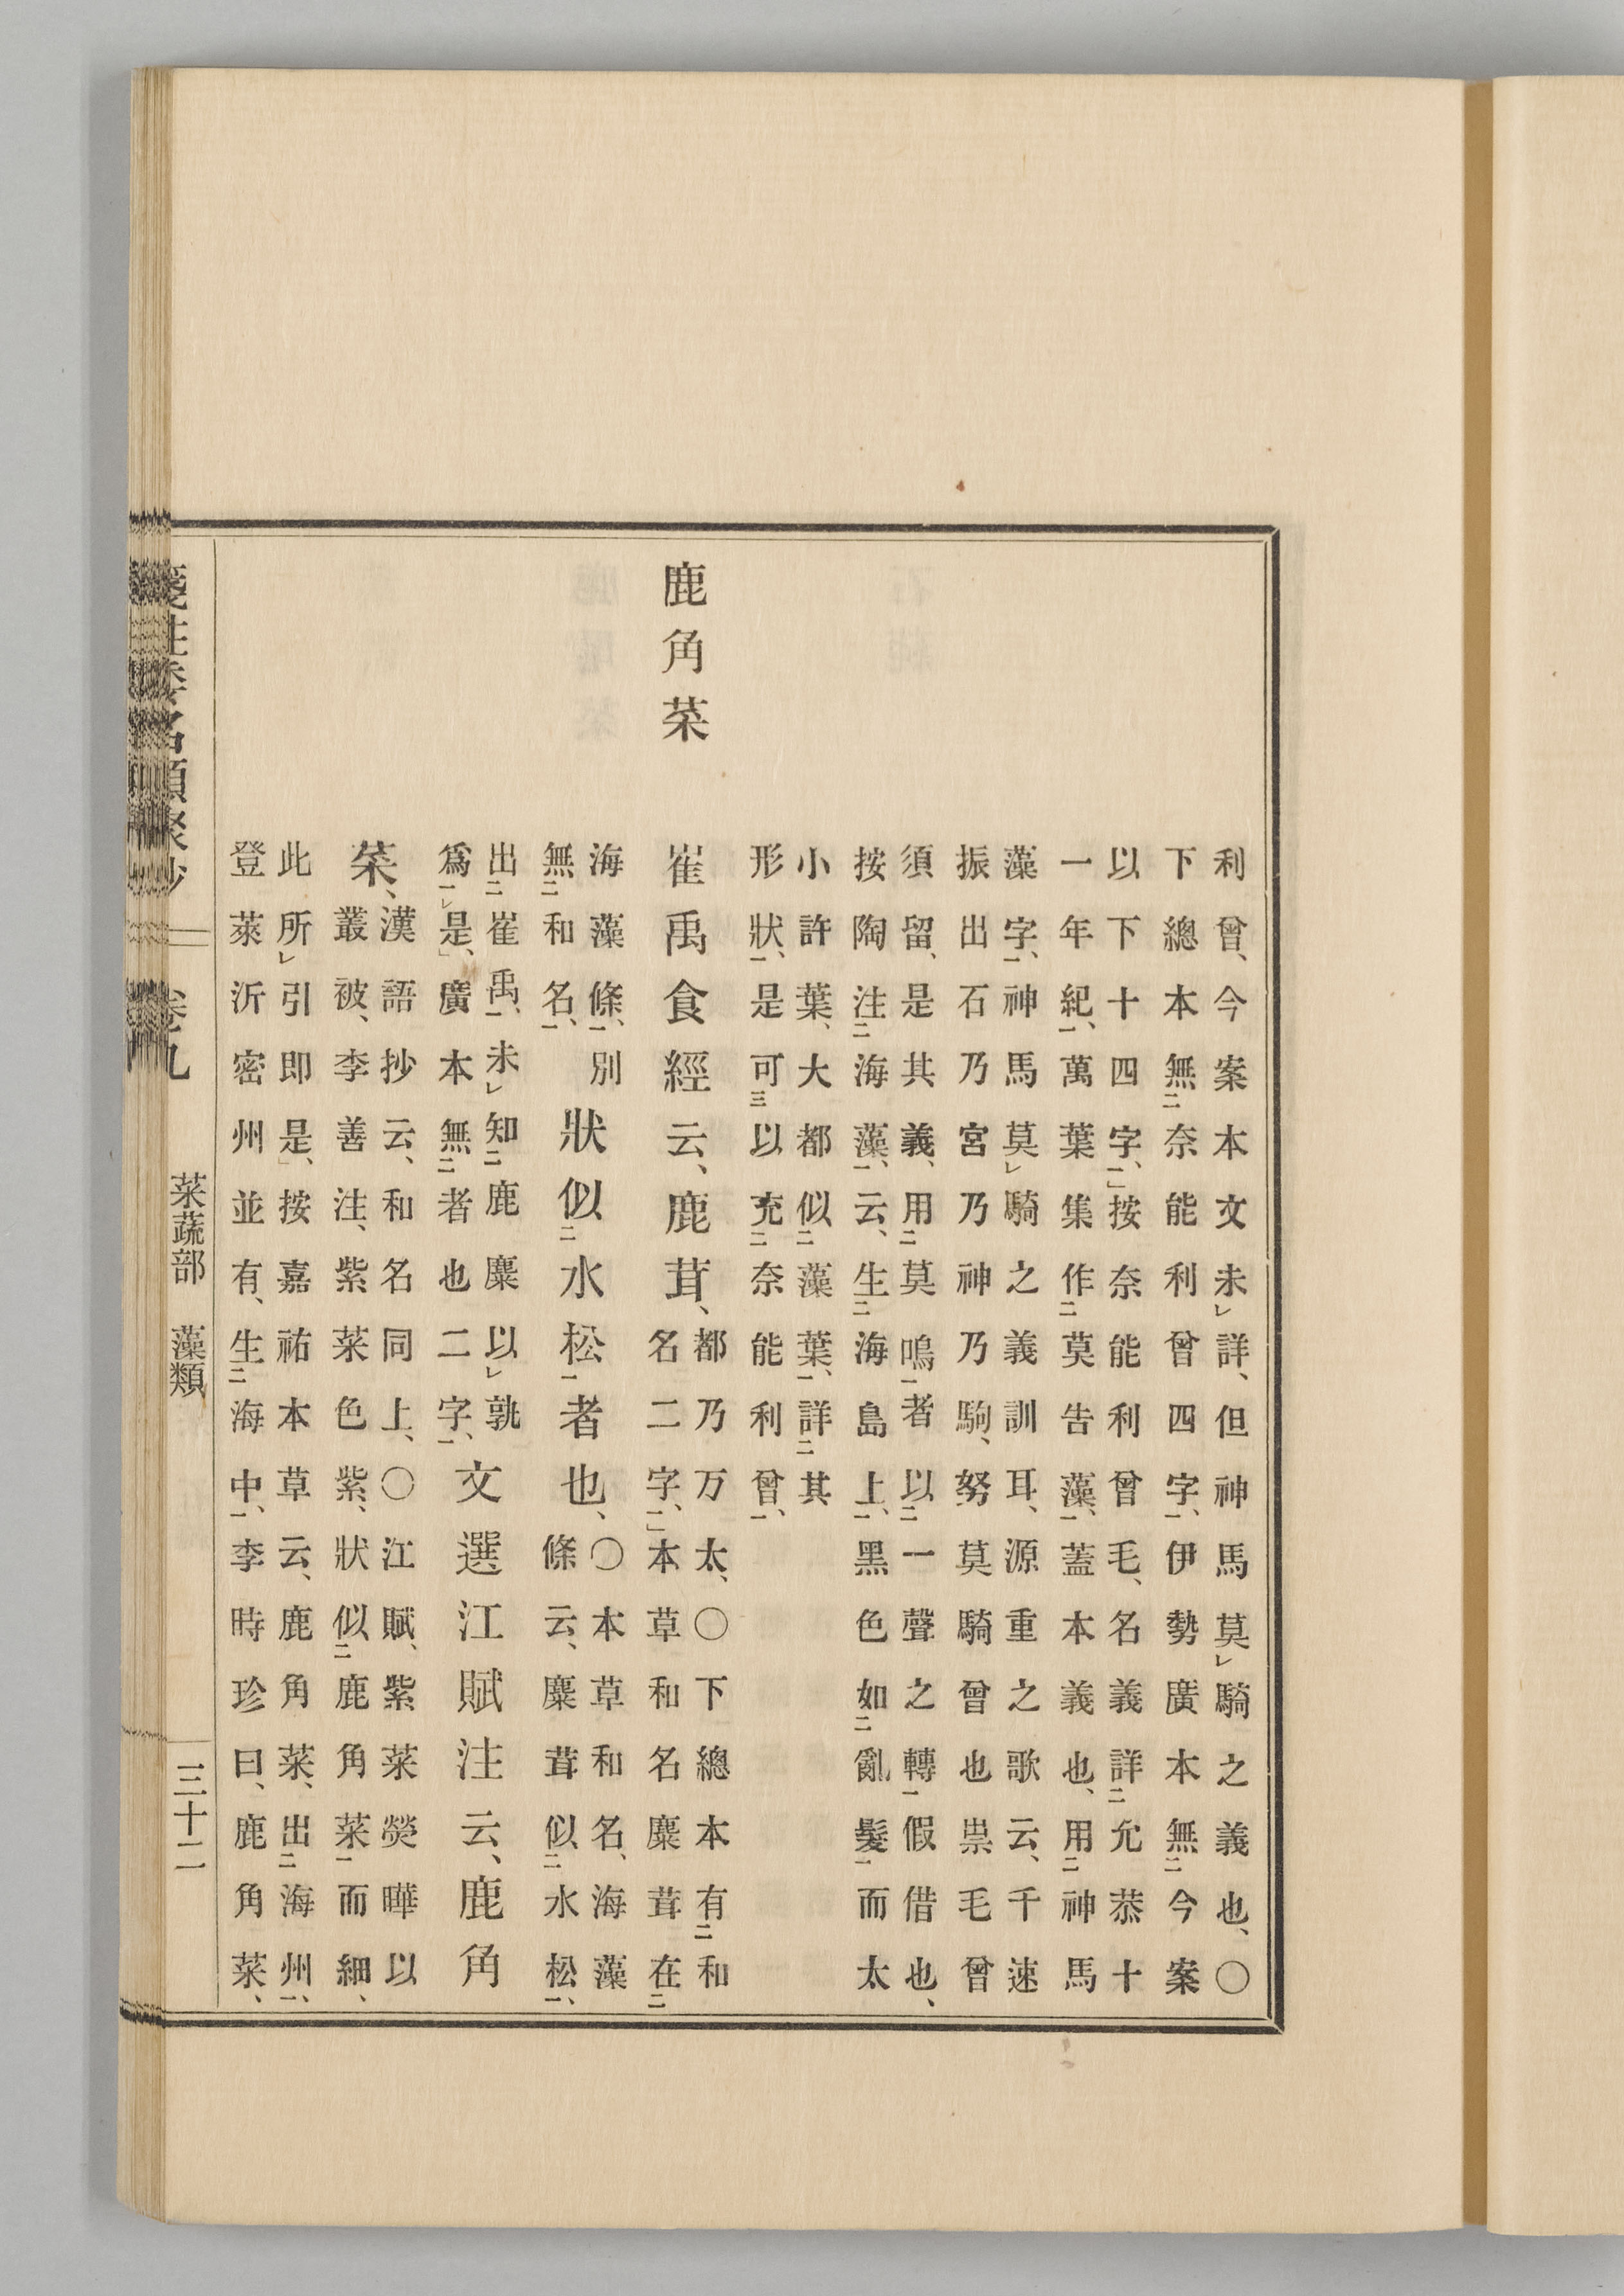 利曾、今案本文未㆑詳、但神馬莫㆑騎之義也、〇
下總本無㆓奈能利曾四字㆒、伊勢廣本無㆓今案
以下十四字㆒、」按奈能利曾毛、名義詳㆓允恭十
一年紀㆒、萬葉集作㆓莫告藻㆒、蓋本義也、用㆓神馬
藻字㆒、神馬莫㆑騎之義訓耳、源重之歌云、千速
振出石乃宮乃神乃駒、努莫騎曾也祟毛曾
須留、是其義、用㆓莫鳴㆒者以㆓一聲之轉㆒假借也、
按陶注㆓海藻㆒云、生㆓海島上㆒、黑色如㆓亂髮㆒而太
小許葉、大都似㆓藻葉㆒、詳㆓其
形狀㆒、是可㆔以充㆓奈能利曾㆒、
鹿角菜
崔禹食經云、鹿茸、
都乃万太、〇下總本有㆓和
名二字㆒、」本草和名麋茸在㆓
海藻條㆒、別
無㆓和名㆒、
狀似㆓水松㆒者也、
〇本草和名、海藻
條云、麋茸似㆓水松㆒、
出㆓崔禹㆒、未㆑知㆓鹿麋以㆑孰
爲㆒㆑是、」廣本無㆓者也二字㆒、
文選江賦注云、鹿角
菜、
漢語抄云、和名同上、〇江賦、紫菜熒曄以
叢被、李善注、紫菜色紫、狀似㆓鹿角菜㆒而細、
此所㆑引即是、」按嘉祐本草云、鹿角菜、出㆓海州㆒、
登萊沂密州並有、生㆓海中㆒、李時珍曰、鹿角菜、
箋注倭名類聚抄 卷九 菜蔬部 藻類 三十二